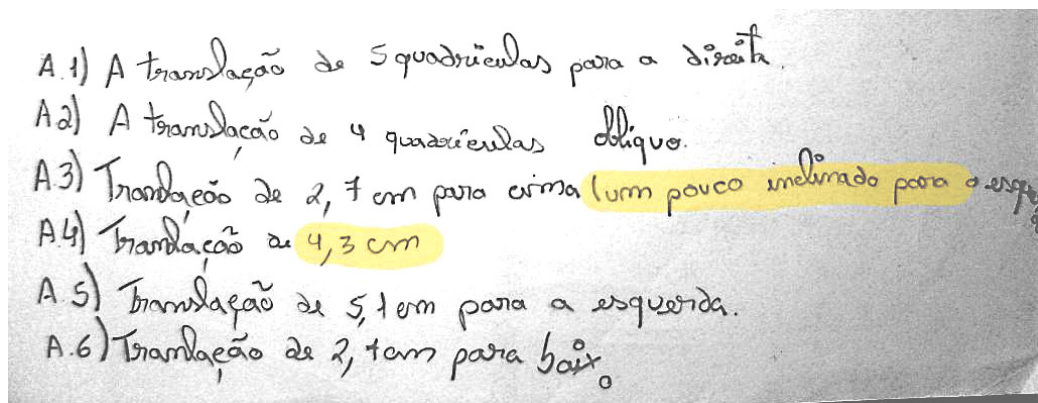 A.1) A translação de 5 quadrículas para a direita.
A.2) A translação de 4 quadrículas oblíquo.
A.3) Translação de 2,7 cm para cima (um pouco inclinado para a
A.4) Translação de 4,3 cm
A.5) Translação de 5,1 cm para a esquerda.
A.6) Translação de 2,7 cm para baixo